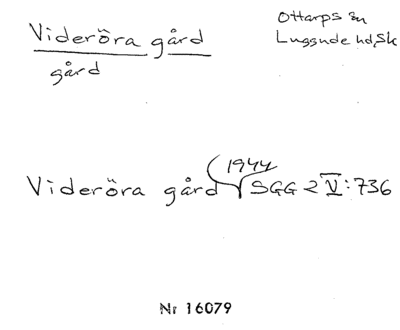 Videröra gård
gård
Ottarps sn
Luggude hd, Sk
1944
Videröra gård SGG 2 V:736
Nr 16079